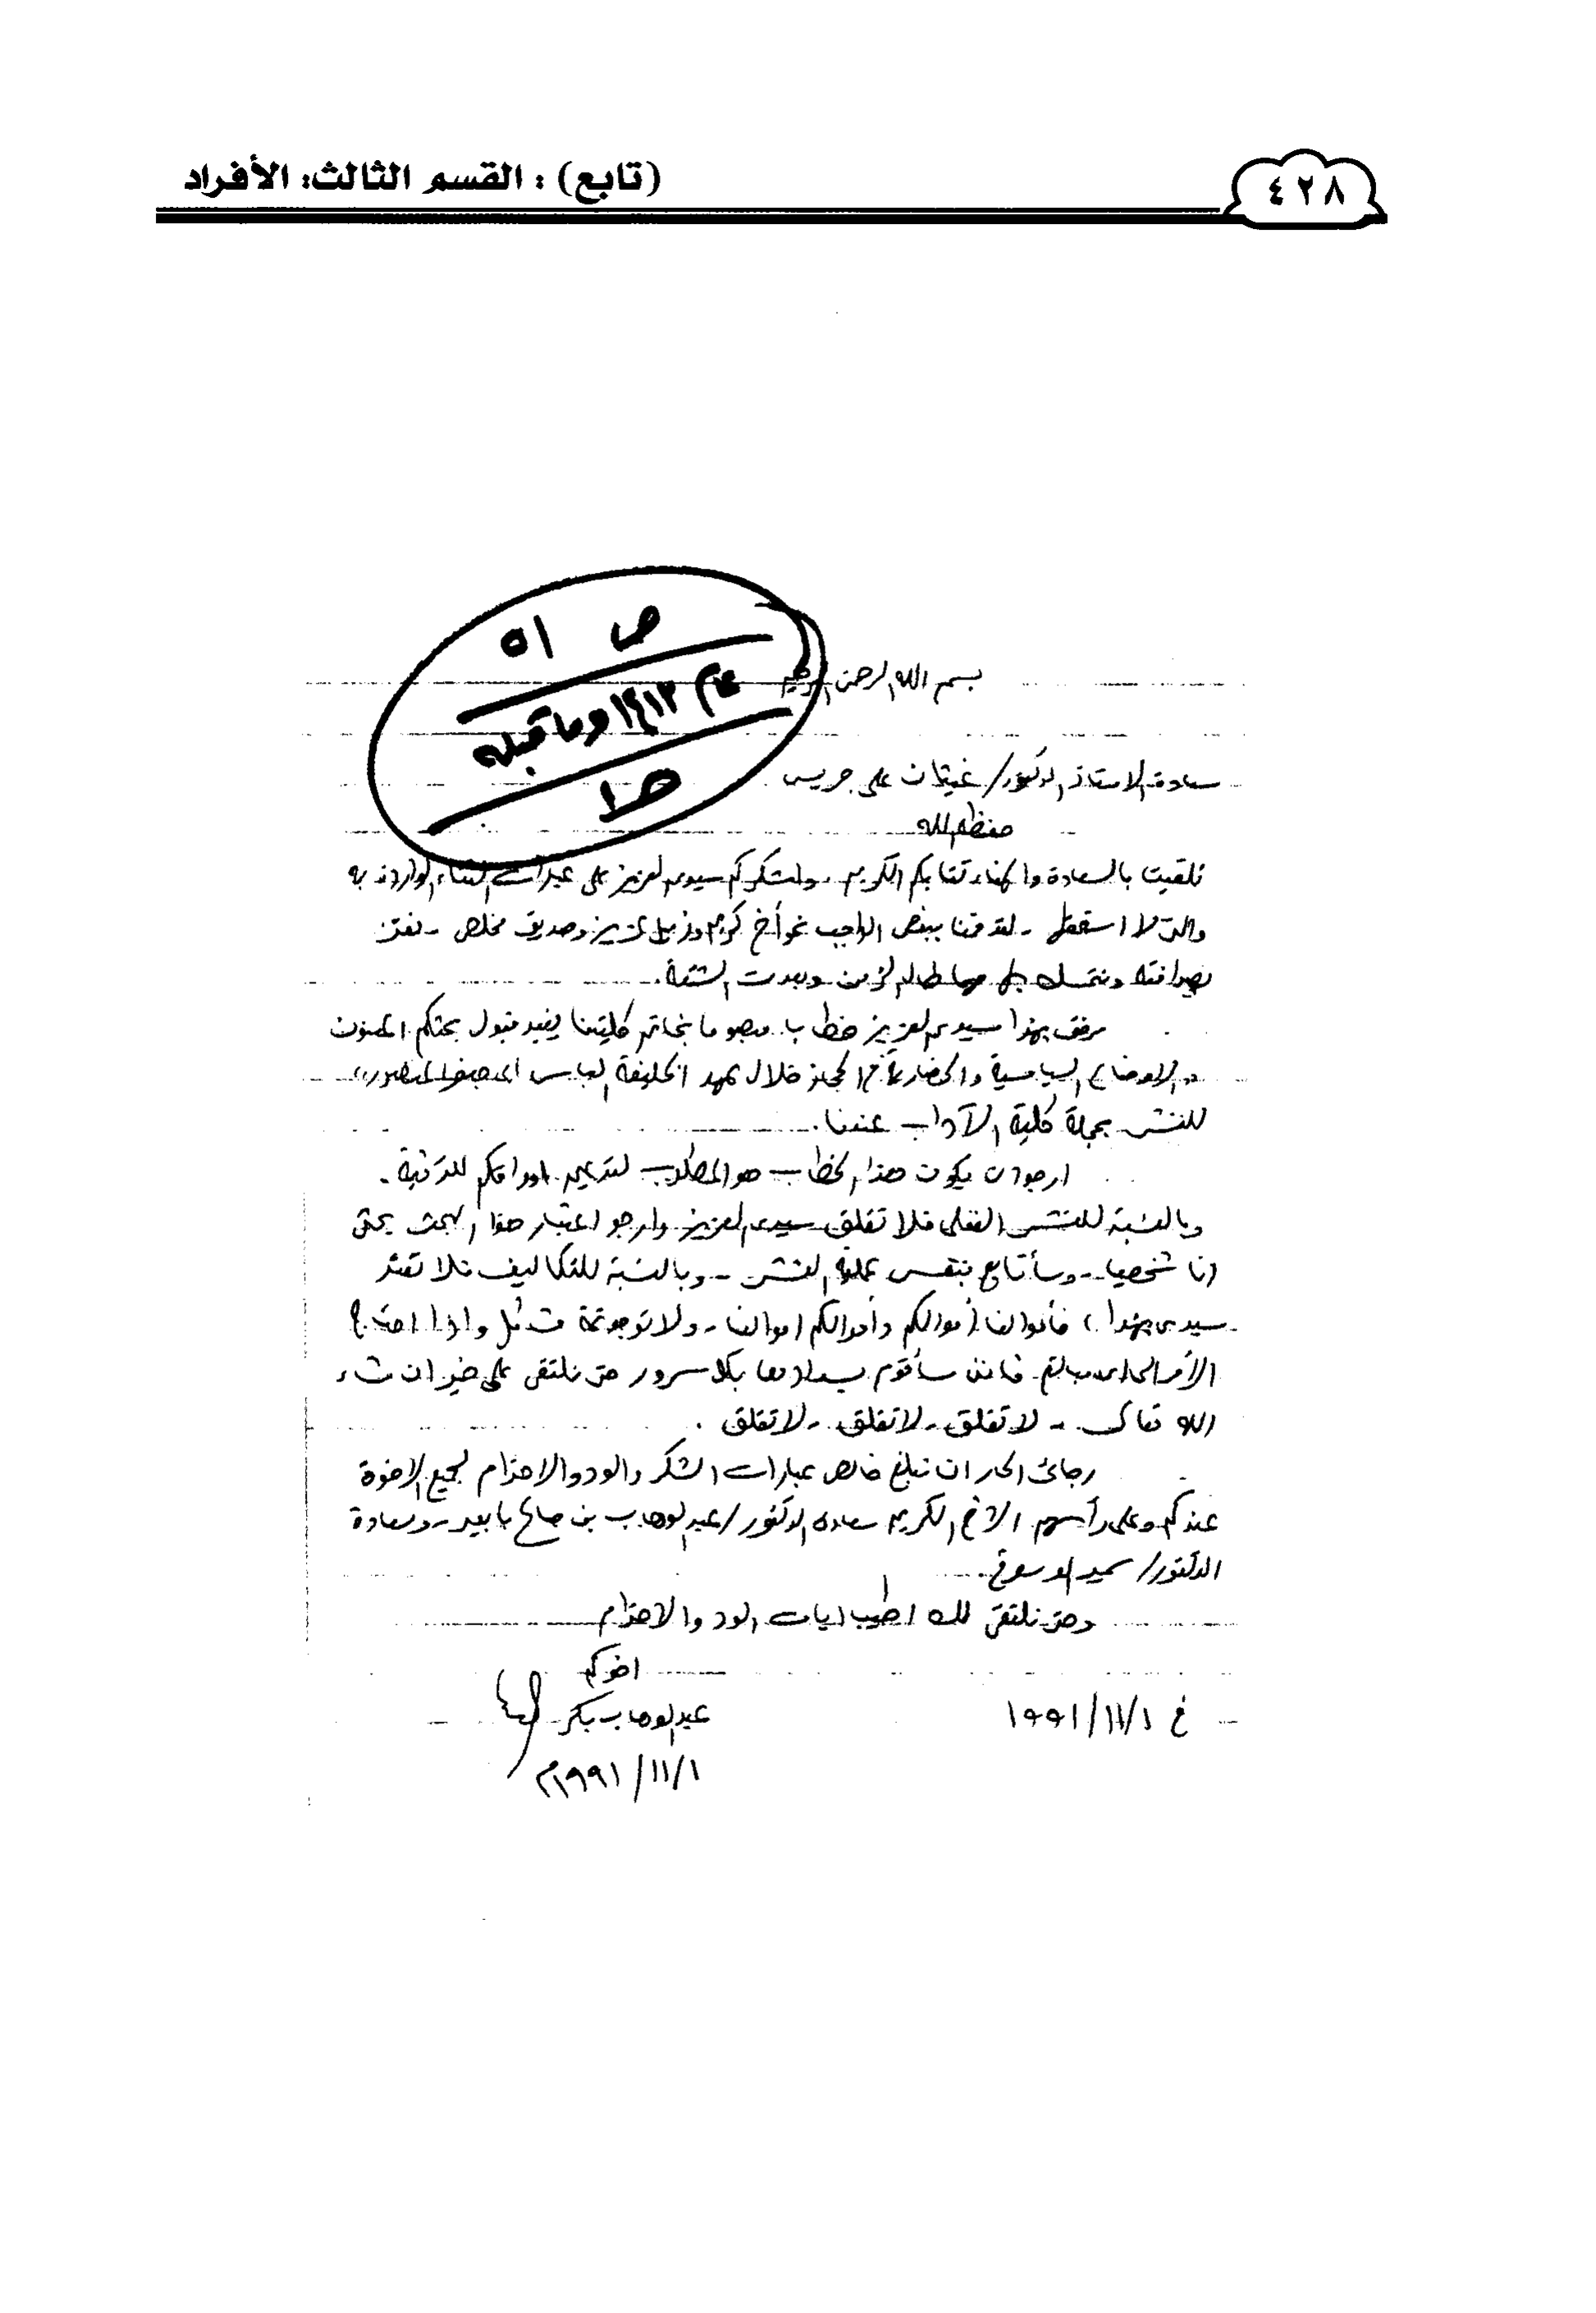 (تابع) : القسم الثالث: الأفراد
٤٢٨
ص ٥١
عام ١٤١٢ وما قبله
بسم الله الرحمن الرحيم
سعادة الاستاذ الدكتور/ غيثان على جريس
حفظه الله
تلقيت بالسعادة والهناء كتابكم الكريم، واشكركم سيدى العزيز على عبارات الثناء الواردة به
والتى لا استحقها - لقد قمنا ببعض الواجب نحو أخ كريم وزميل عزيز وصديق مخلص - نعتز
بصداقته ونتمسك بها مهما طال الزمن وبعدت الشقة.
مرفق بهذا سيدى العزيز خطاب ممهوما بخاتم كليتنا يفيد قبول بحثكم المعنون
"الاوضاع السياسية والحضارية فى الحجاز خلال عهد الخليفة العباسى ابى جعفر المنصور"
للنشر بمجلة كلية الآداب عندنا.
ارجو ان يكون هذا الخطاب هو المطلوب لتدعيم اوراقكم للترقية.
وبالنسبة للنشر الفعلى فلا تقلق سيدى العزيز وارجو اعتبار هذا البحث بحثى
انا شخصيا - وسأتابع بنفسى عملية النشر - وبالنسبة للتكاليف فلا تهتم
سيدى بهذا، فأموالنا أموالكم وأموالكم اموالنا - ولا توجد ثمة مشاكل واذا احتاج
الأمر الى اى مبالغ فاننى سأقوم بسدادها بكل سرور حتى نلتقى على خير ان شاء
الله تعالى - لا تقلق - لا تقلق - لا تقلق.
رجائى الحار ان تبلغ خالص عبارات الشكر والود والاحترام لجميع الاخوة
عندكم وعلى رأسهم الاخ الكريم سعادة الدكتور/ عبدالوهاب بن صالح بابعير - وسعادة
الدكتور/ سمير الدسوقى.
وحتى نلتقى لك اطيب ايات الود والاحترام
اخوكم
عبدالوهاب بكر
فى ١/١١/١٩٩١
١/١١/١٩٩١م